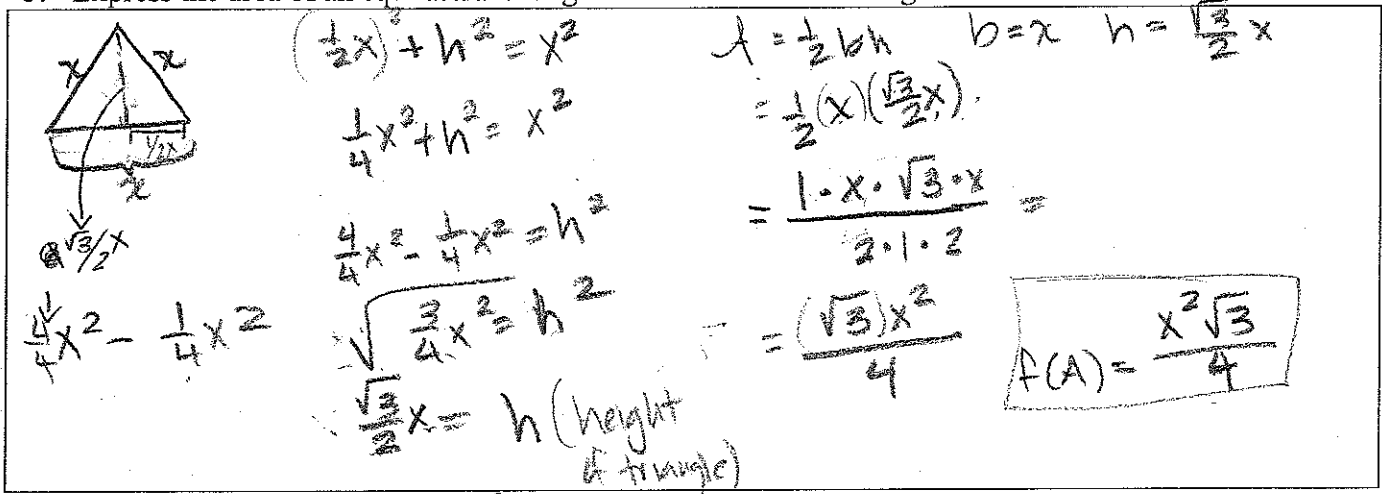 x x
1/2x
x
√3/2 x
4/4 x² - 1/4 x²
(1/2 x)² + h² = x²
1/4 x² + h² = x²
4/4 x² - 1/4 x² = h²
√(3/4 x² = h²
√3/2 x = h (height
of triangle)
A = 1/2 bh b = x h = √3/2 x
= 1/2 (x)(√3/2 x)
= 1·x·√3·x / 2·1·2 =
= (√3)x² / 4
f(A) = x²√3 / 4